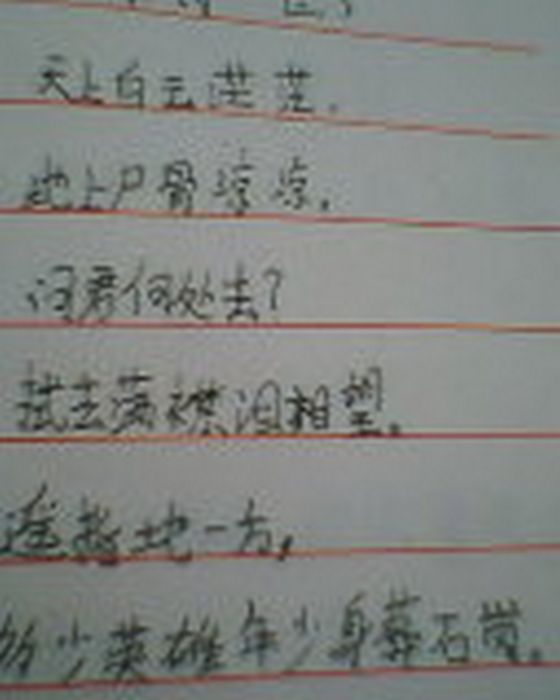 天上白云茫茫.
地上尸骨凉凉.
问君何处去?
拭去满襟泪相望.
遥指地一方,
多少英雄年少身葬石岗.